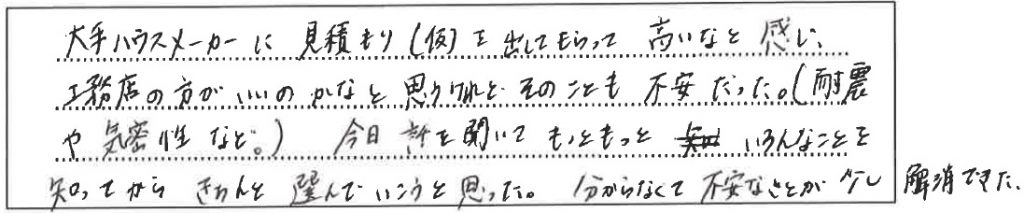 大手ハウスメーカーに 見積もり(仮)を出してもらって 高いなと 感じ、
工務店の方が いいのかなと 思うけれど そのことも 不安だった。(耐震
や 気密性 など。) 今日 話を聞いて もっともっと いろんなことを
知ってから きちんと 選んでいこうと思った。 分からなくて 不安なことが 少し 解消できた。